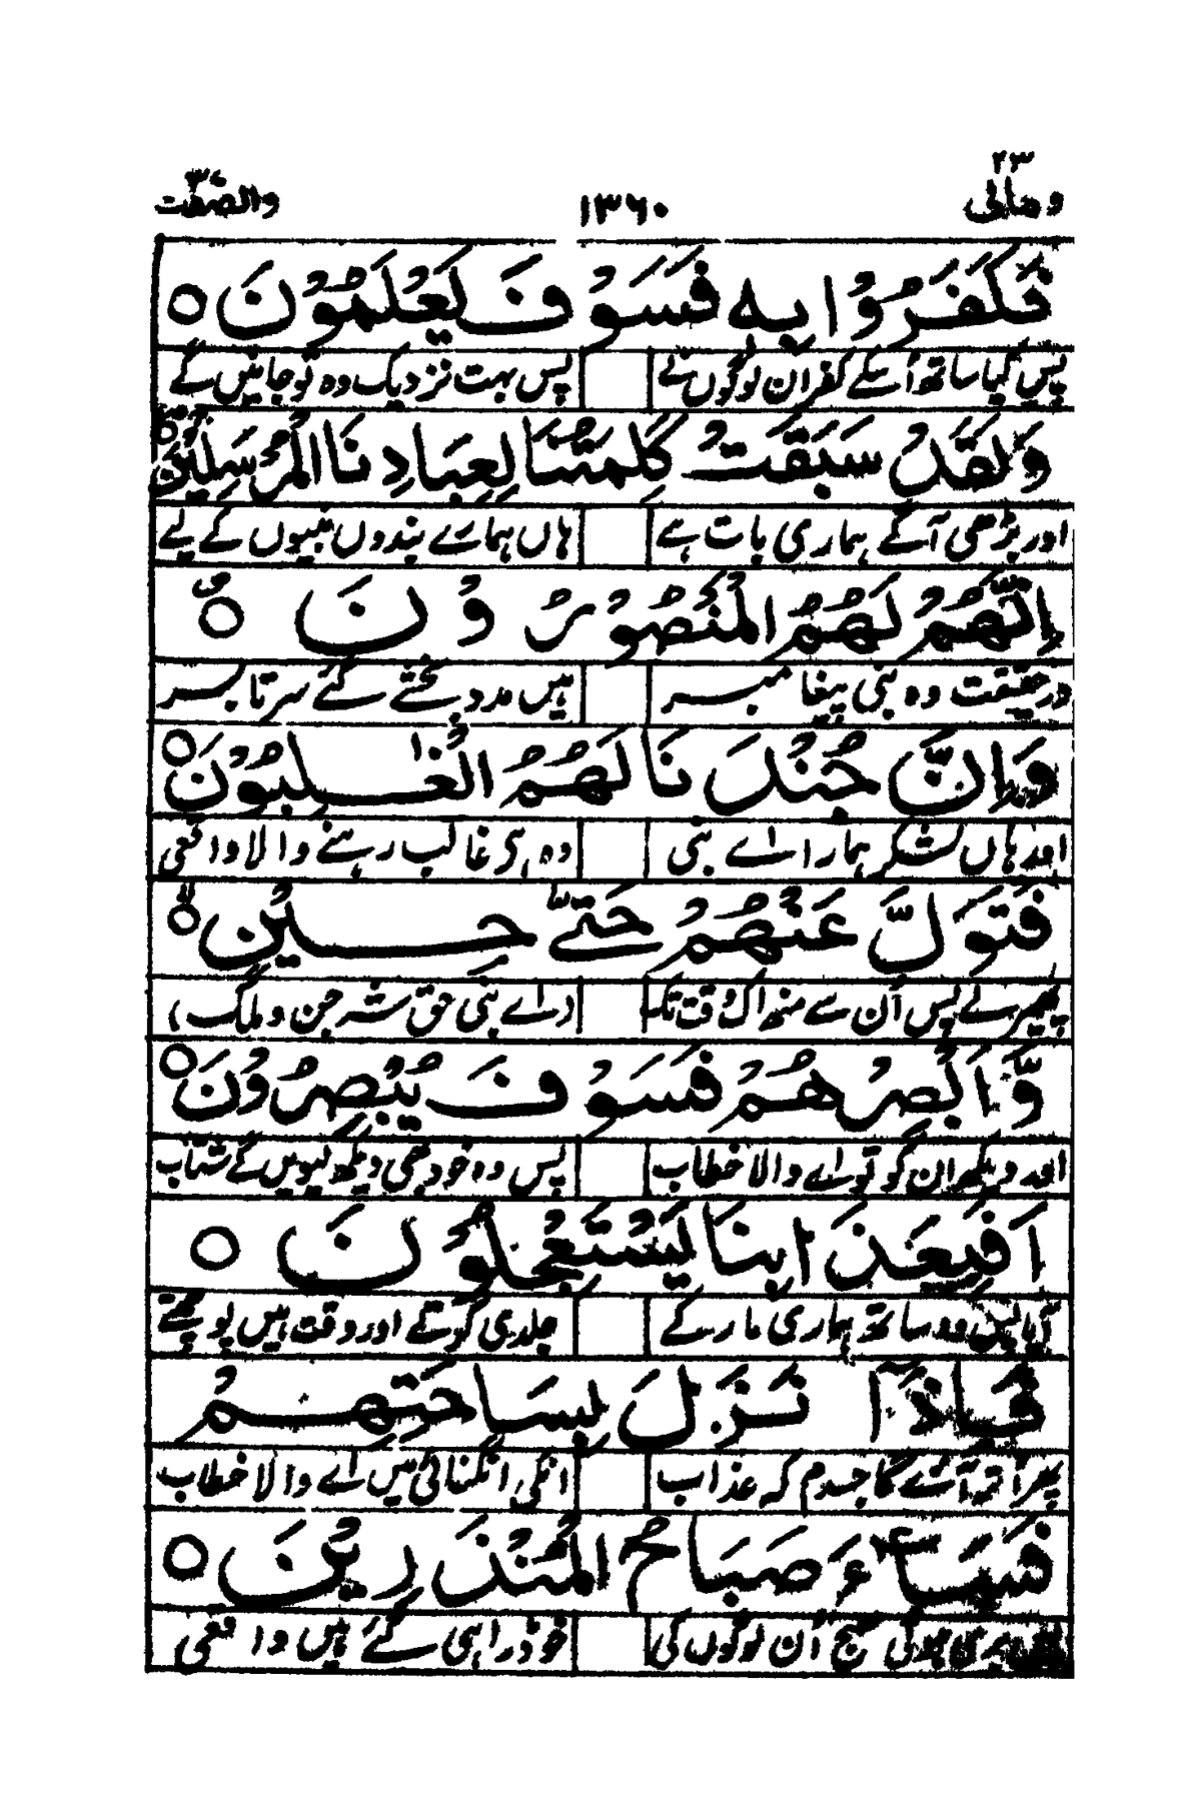 ومالی ۲۳ ۱۳۶۰ والصّٰفٰت ۳۷
فَكَفَرُوْا بِهٖ فَسَوْفَ يَعْلَمُوْنَ ○
پس کیا ساتھ اُسکے کفر ان لوگوں نے پس بہت نزدیک وہ تو جانیں گے
وَلَقَدْ سَبَقَتْ كَلِمَتُنَا لِعِبَادِنَا الْمُرْسَلِيْنَ ○
اور بڑھی آگے ہماری بات ہے ہاں ہمارے بندوں نبیوں کے لیے
اِنَّهُمْ لَهُمُ الْمَنْصُوْرُوْنَ ○
درحقیقت وہ نبی پیغامبر ہیں مدد بخشے گئے سرتا بسر
وَاِنَّ جُنْدَنَا لَهُمُ الْغٰلِبُوْنَ ○
اور ہاں لشکر ہمارا اے نبی وہ ہی غالب رہنے والا واقعی
فَتَوَلَّ عَنْهُمْ حَتّٰى حِيْنٍ ○
پھیر لے پس اُن سے منھ اک وقت تک (اے نبی حق شہ جن و ملک)
وَّاَبْصِرْهُمْ فَسَوْفَ يُبْصِرُوْنَ ○
اور دیکھ ان کو تو اے والا خطاب پس وہ خود بھی دیکھ لیویں گے شتاب
اَفَبِعَذَابِنَا يَسْتَعْجِلُوْنَ ○
آیا پس وہ ساتھ ہماری مار کے جلدی کرتے اور وقت ہیں پوچھتے
فَاِذَا نَزَلَ بِسَاحَتِهِمْ
پھر اتر آئے گا جسدم کہ عذاب انکی انگنائی میں اے والا خطاب
فَسَآءَ صَبَاحُ الْمُنْذَرِيْنَ ○
بری ہوگی صبح اُن لوگوں کی خود ڈرا ہی گئے ہیں واقعی